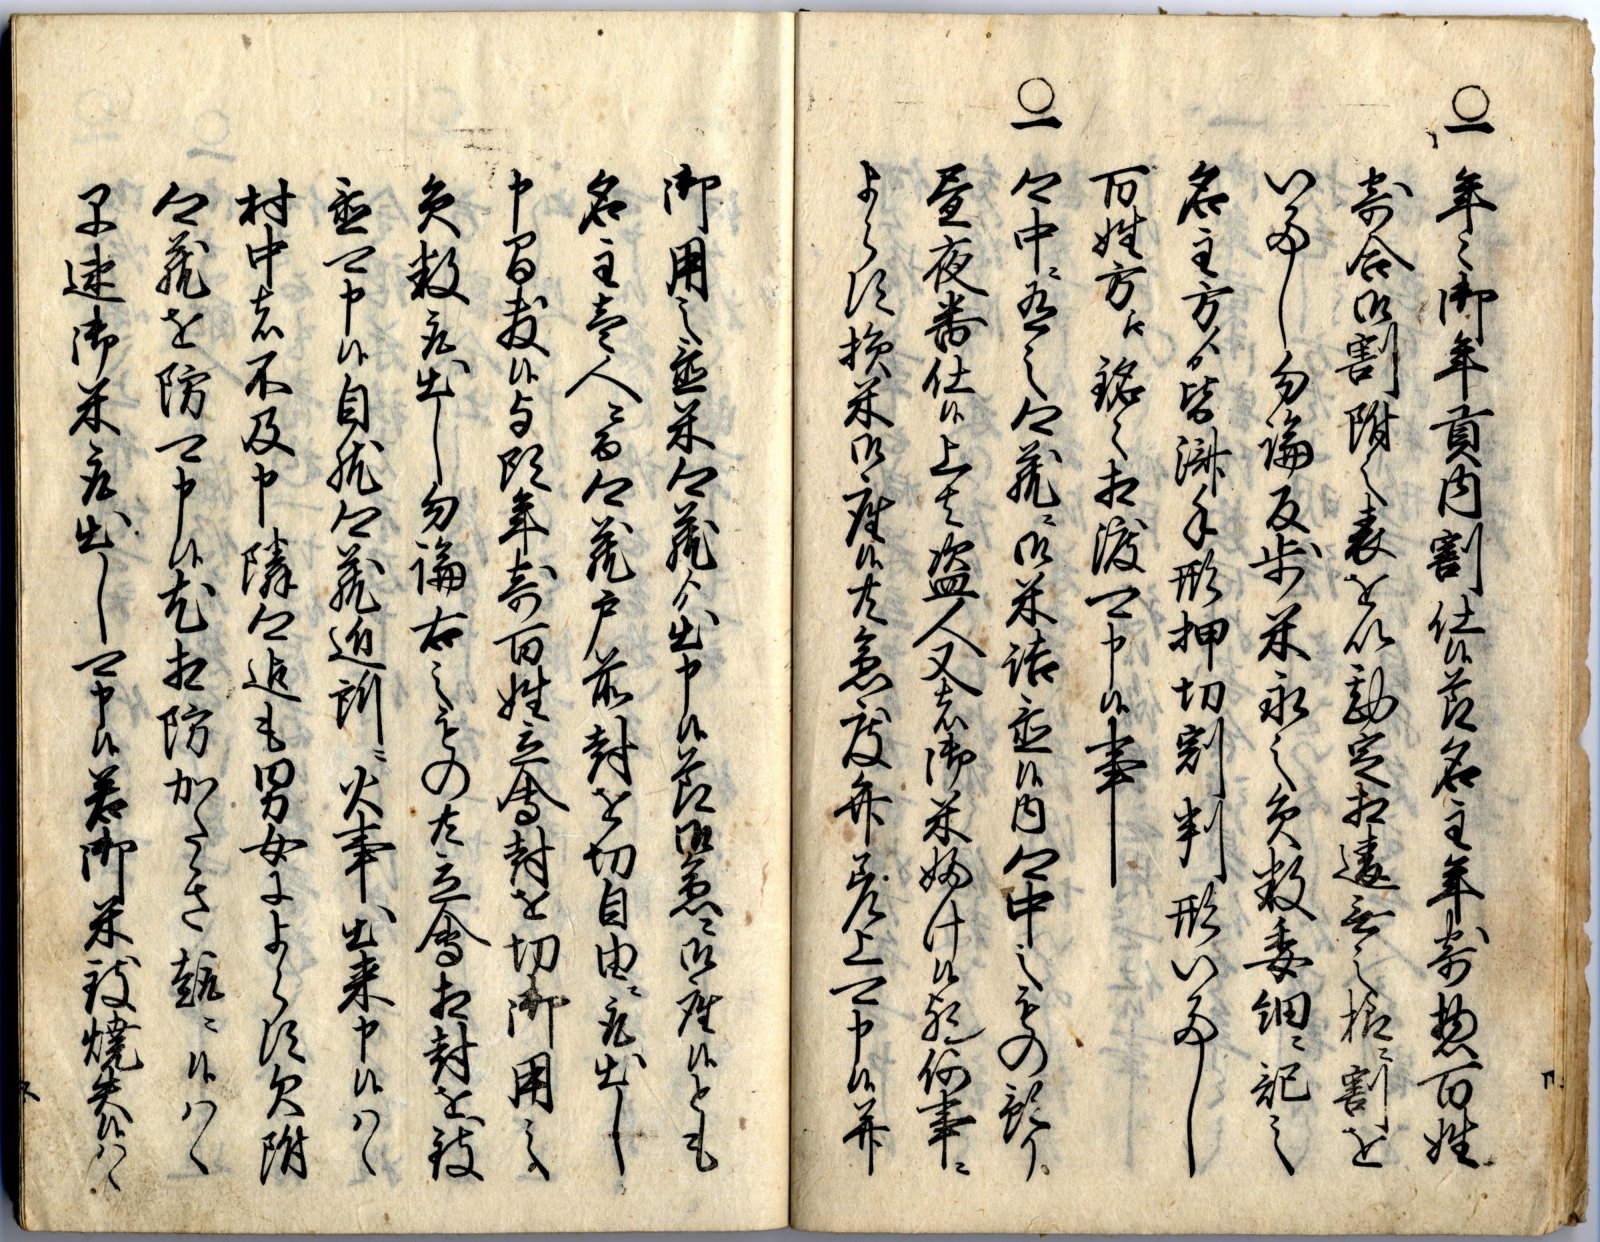 〇一 年々御年貢内割仕候節名主年寄惣百姓
寄合御割附之表を以勘定相違無之様ニ割を
いたし勿論反歩米永之員数委細ニ記之
名主方ゟ皆済手形押切割判形いたし
百姓方江銘々相渡可申候事
〇一 郷中ニ有之郷蔵ニ御米詰置候内郷中之もの乾り
昼夜番仕候上者盗人又者御米ぬけ候儀何事ニ
よらす損米御座候共急度弁差上可申候并
御用之置米郷蔵ゟ出申候節御急ニ御座候とも
名主壱人ニ而郷蔵戸前封を切自由ニ取出し
申間敷候与頭年寄百姓立会封を切御用之
員数取出し勿論右之もの共立会相封を致
置可申候自然郷蔵近所ニ火事出来申候ハヽ
村中者不及申隣郷迄も男女によらす欠附
郷蔵を防可申候尤相防かたき躰ニ候ハヽ
早速御米取出し可申候若御米致焼失候ハヽ